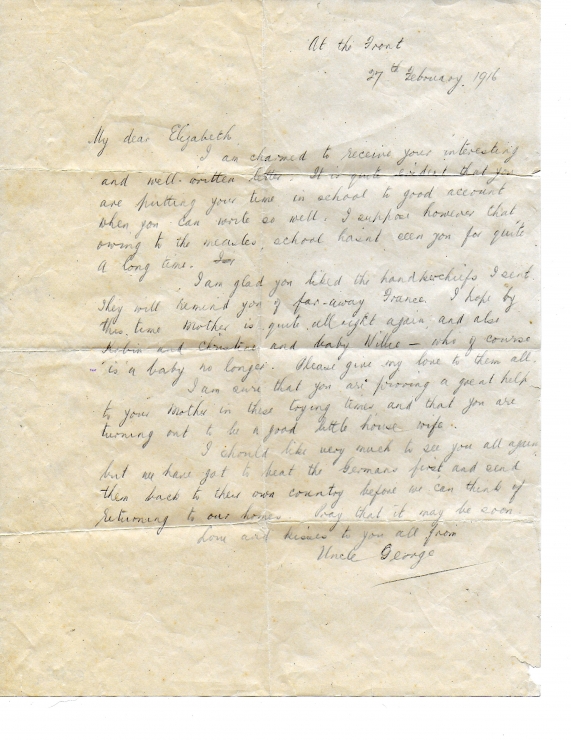 At the Front
27th February, 1916
My dear Elizabeth
I am charmed to receive your interesting
and well-written letter. It is quite evident that you
are putting your time in school to good account
when you can write so well. I suppose however that
owing to the measles, school hasn't seen you for quite
a long time.
I am glad you liked the handkerchiefs I sent.
They will remind you of far-away France. I hope by
this time Mother is quite all right again and also
and Christine and baby Willie - who of course
is a baby no longer. Please give my love to them all.
I am sure that you are proving a great help
to your Mother in these trying times and that you are
turning out to be a good little house wife.
I should like very much to see you all again
but we have got to beat the Germans first and send
them back to their own country before we can think of
returning to our homes. Pray that it may be soon.
Love and kisses to you all from
Uncle George